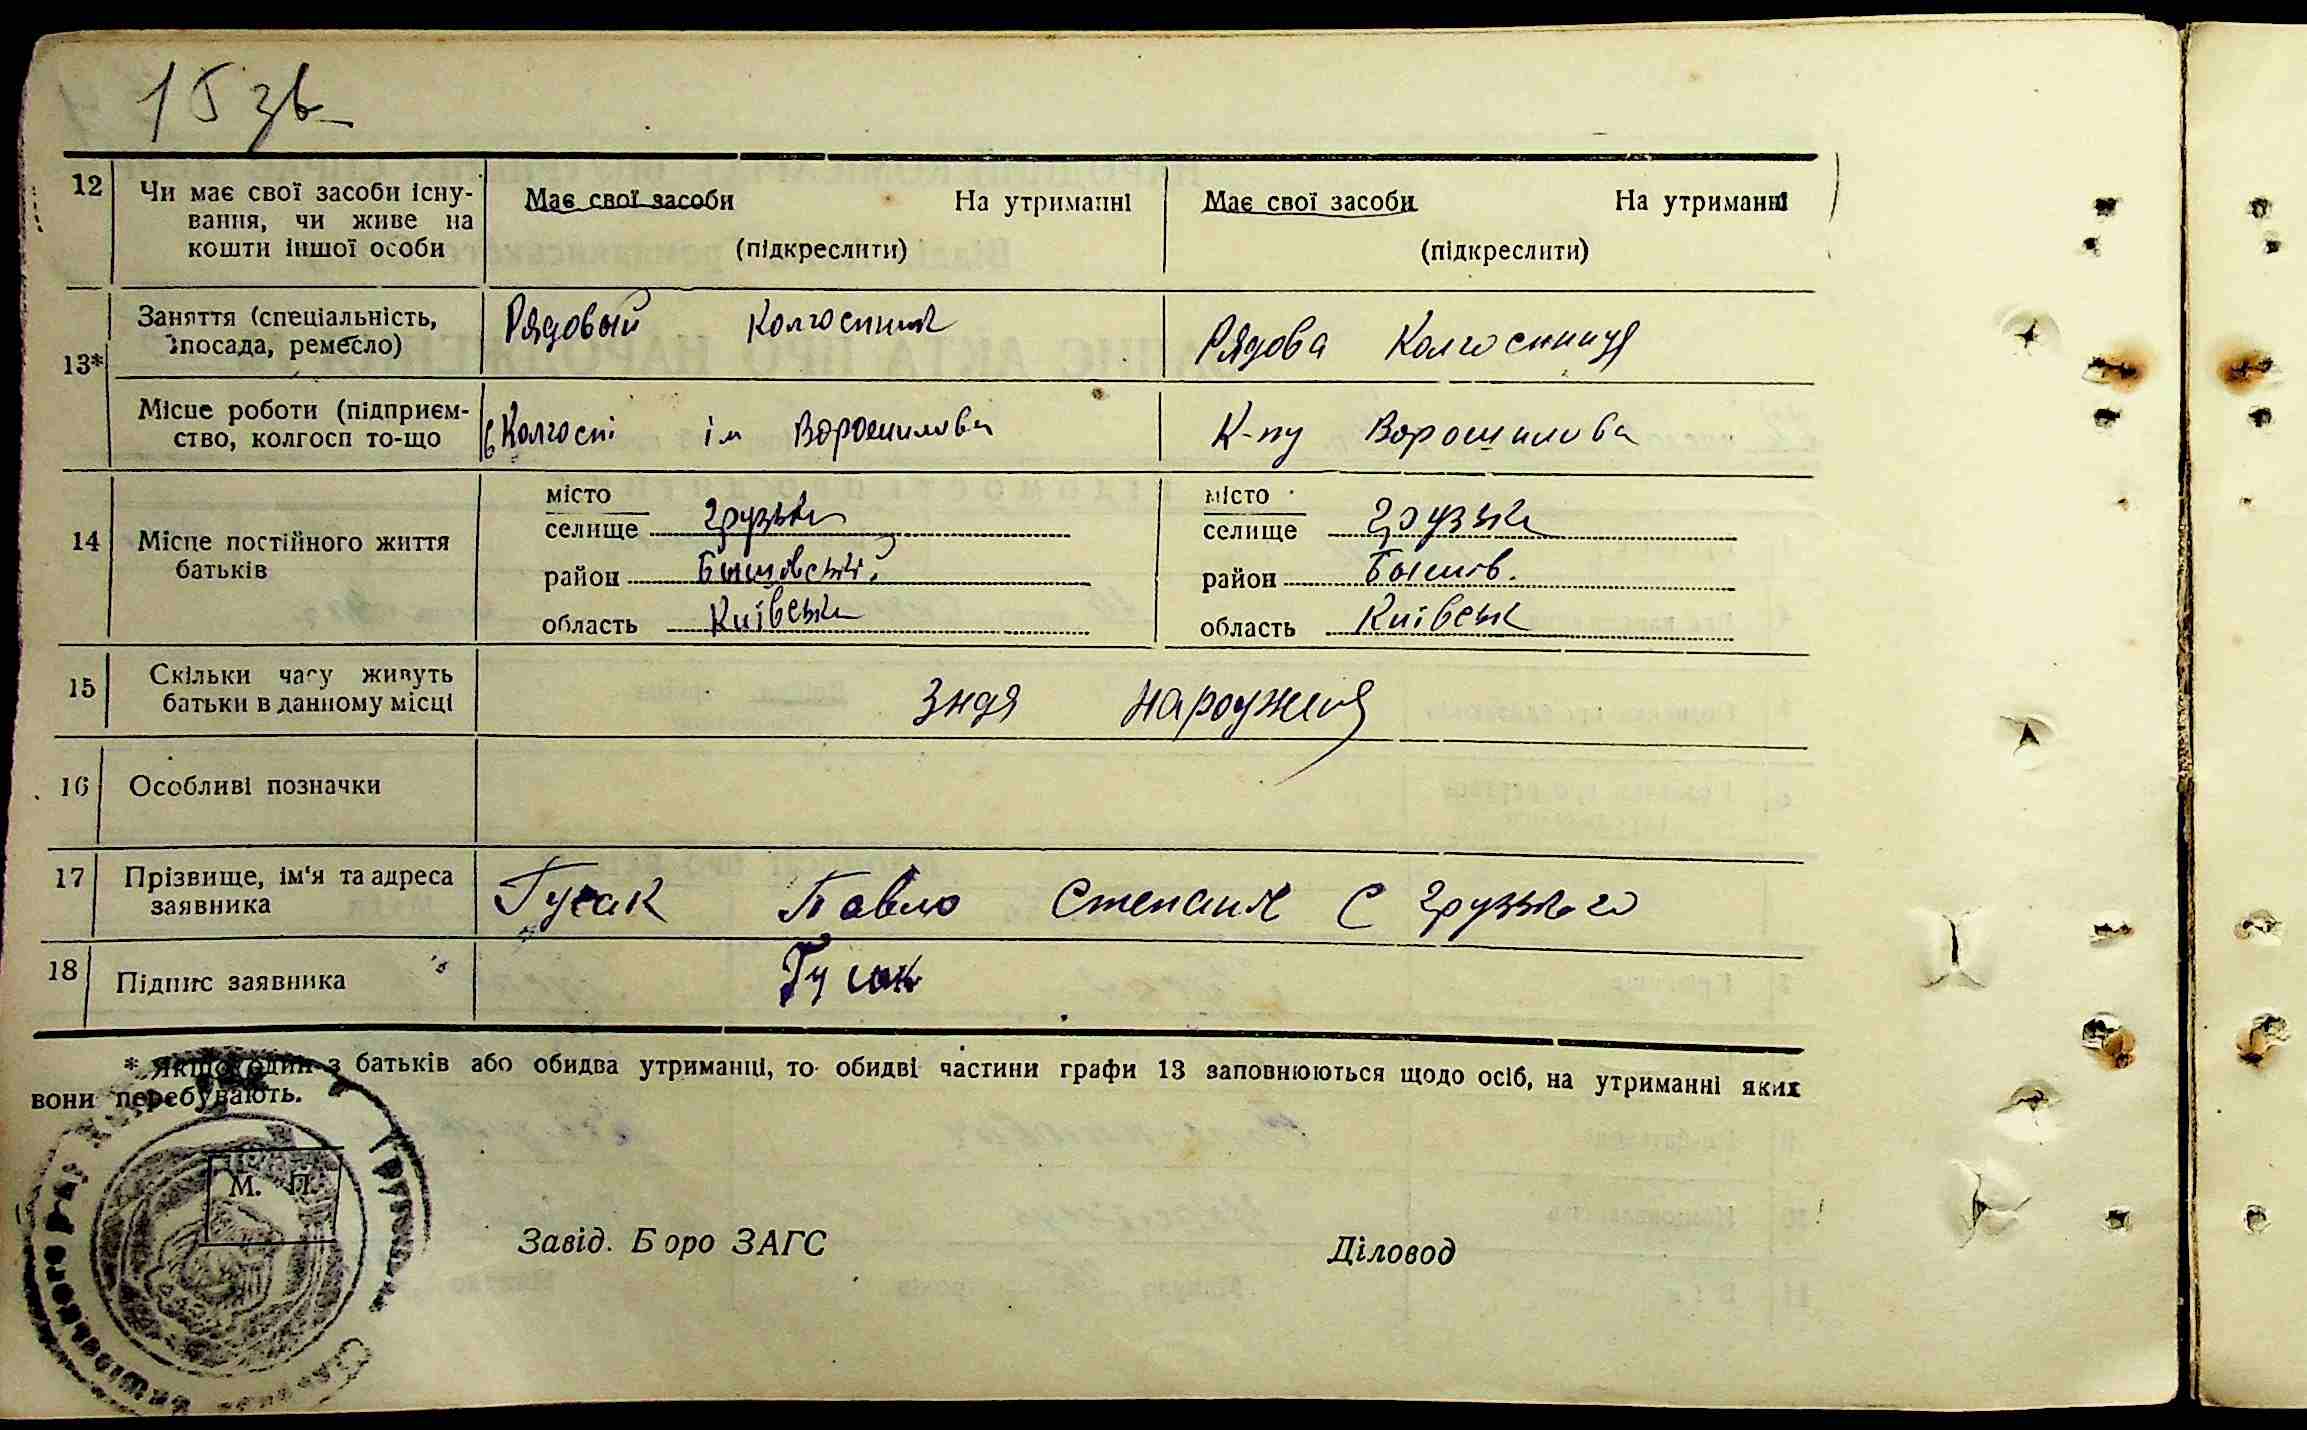 15 зв
12
Чи має свої засоби існу-
вання, чи живе на
кошти іншої особи
Має свої засоби На утриманні
(підкреслити)
Має свої засоби На утриманні
(підкреслити)
13*
Заняття (спеціальність,
посада, ремесло)
Рядовый колгоспник
Рядова Колгоспниця
Місце роботи (підприєм-
ство, колгосп то-що
в Колгоспі ім Ворошилова
К-пу Ворошилова
14
Місце постійного життя
батьків
місто
селище Грузьки
район
область Київська
місто
селище Грузьки
район Бышів.
область Київськ
15
Скільки часу живуть
батьки в данному місці
Зндя народженя
16
Особливі позначки
17
Прізвище, ім'я та адреса
заявника
Гусак Павло С Грузького
18
Підпис заявника
Гусак
* Якщо один з батьків або обидва утриманці, то обидві частини графи 13 заповнюються щодо осіб, на утриманні яких
вони перебувають.
М. П.
Завід. Б оро ЗАГС
Діловод